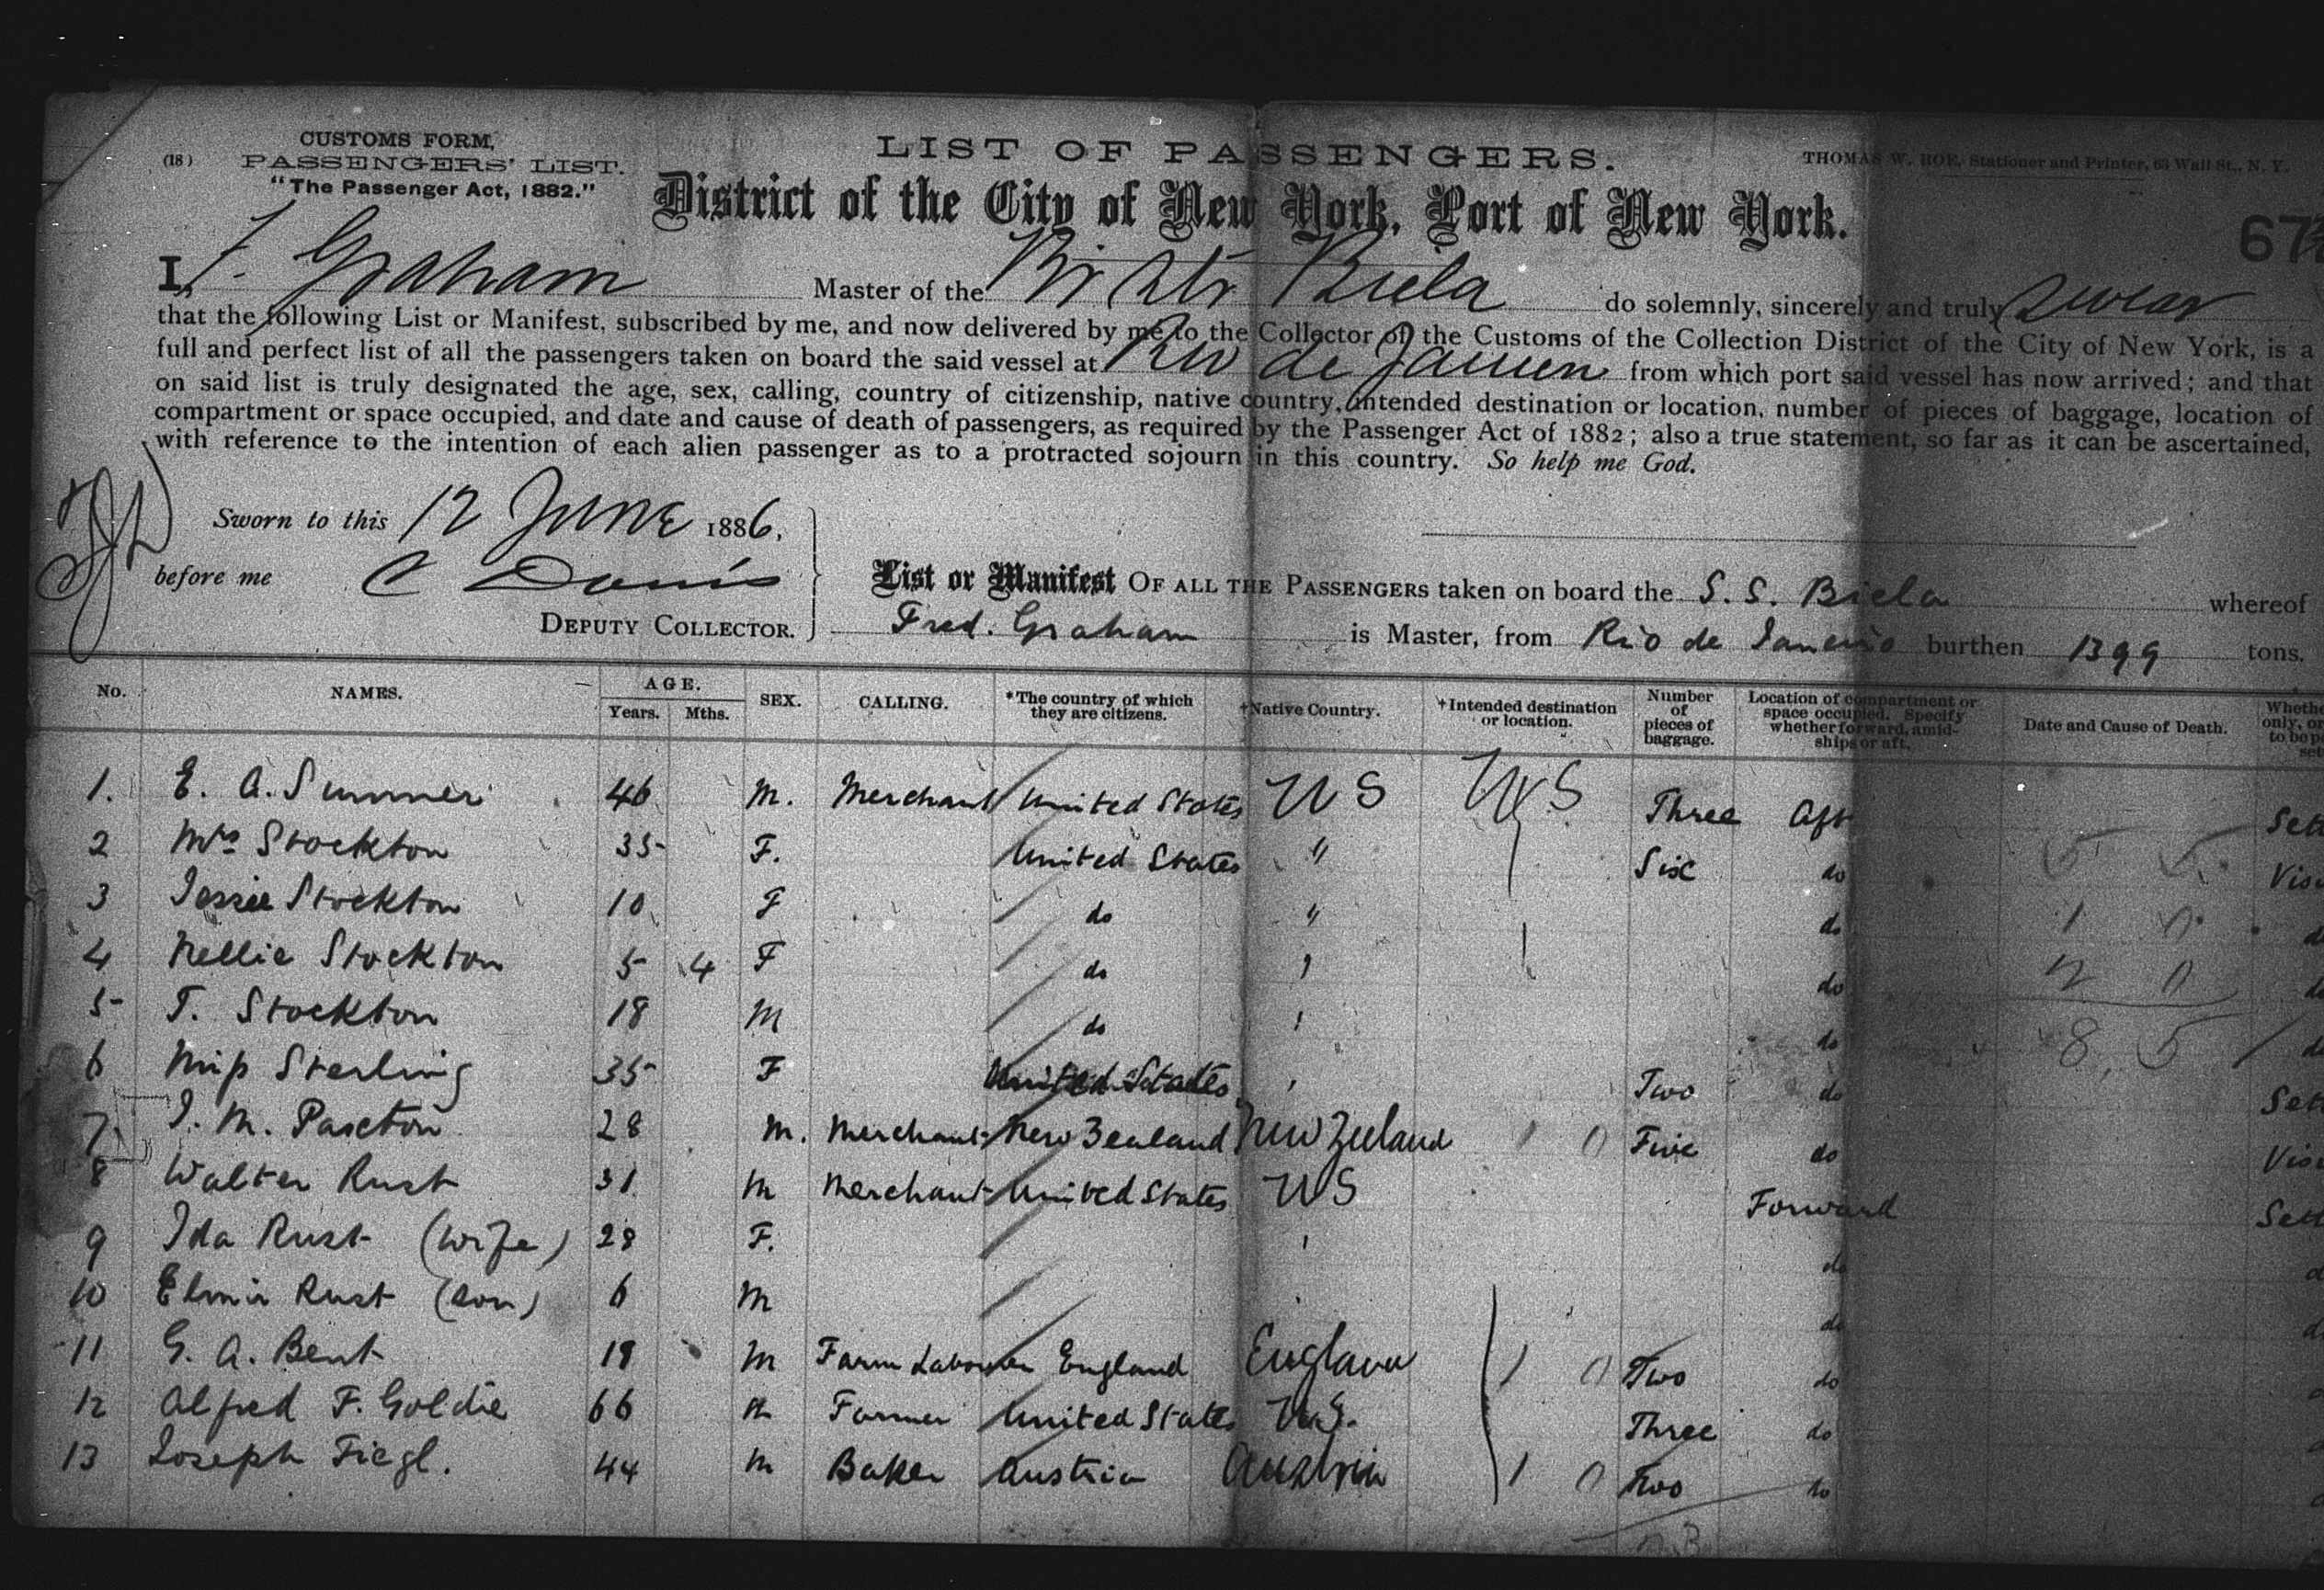 CUSTOMS FORM,
(18) PASSENGERS' LIST.
"The Passenger Act, 1882."
LIST OF PASSENGERS.
THOMAS W. ROE, Stationer and Printer, 63 Wall St., N. Y.
District of the City of New York, Port of New York.
67
I, F. Graham Master of the Br Str Biela do solemnly, sincerely and truly swear
that the following List or Manifest, subscribed by me, and now delivered by me to the Collector of the Customs of the Collection District of the City of New York, is a
full and perfect list of all the passengers taken on board the said vessel at Rio de Janeiro from which port said vessel has now arrived; and that
on said list is truly designated the age, sex, calling, country of citizenship, native country, intended destination or location, number of pieces of baggage, location of
compartment or space occupied, and date and cause of death of passengers, as required by the Passenger Act of 1882; also a true statement, so far as it can be ascertained,
with reference to the intention of each alien passenger as to a protracted sojourn in this country. So help me God.
Sworn to this 12 June 1886,
before me C Davis
DEPUTY COLLECTOR.
List or Manifest OF ALL THE PASSENGERS taken on board the S. S. Biela whereof
Fred. Graham is Master, from Rio de Janeiro burthen 1399 tons.
No. NAMES. AGE. Years. Mths. SEX. CALLING. *The country of which they are citizens. †Native Country. †Intended destination or location. Number of pieces of baggage. Location of compartment or space occupied. Specify whether forward, amidships or aft. Date and Cause of Death.
1. E. A. Sumner 46 M. Merchant United States U S U S Three Aft
2 Mrs Stockton 35 F. United States " Six do
3 Jessie Stockton 10 F do " do
4 Nellie Stockton 5 4 F do " do
5 T. Stockton 18 M do " do
6 Miss Sterling 35 F United States " Two do
7 J. M. Paxton 28 M. Merchant New Zealand New Zeeland 1 0 Five do
8 Walter Rust 31 M Merchant United States US Forward
9 Ida Rust (wife) 28 F. " do
10 Elmir Rust (son) 6 M do
11 G. A. Bent 19 M Farm Laborer England England 1 0 Two do
12 Alfred F. Goldie 66 M Farmer United States U.S. Three do
13 Joseph Fiegl. 44 M Baker Austria Austria 1 0 Two do